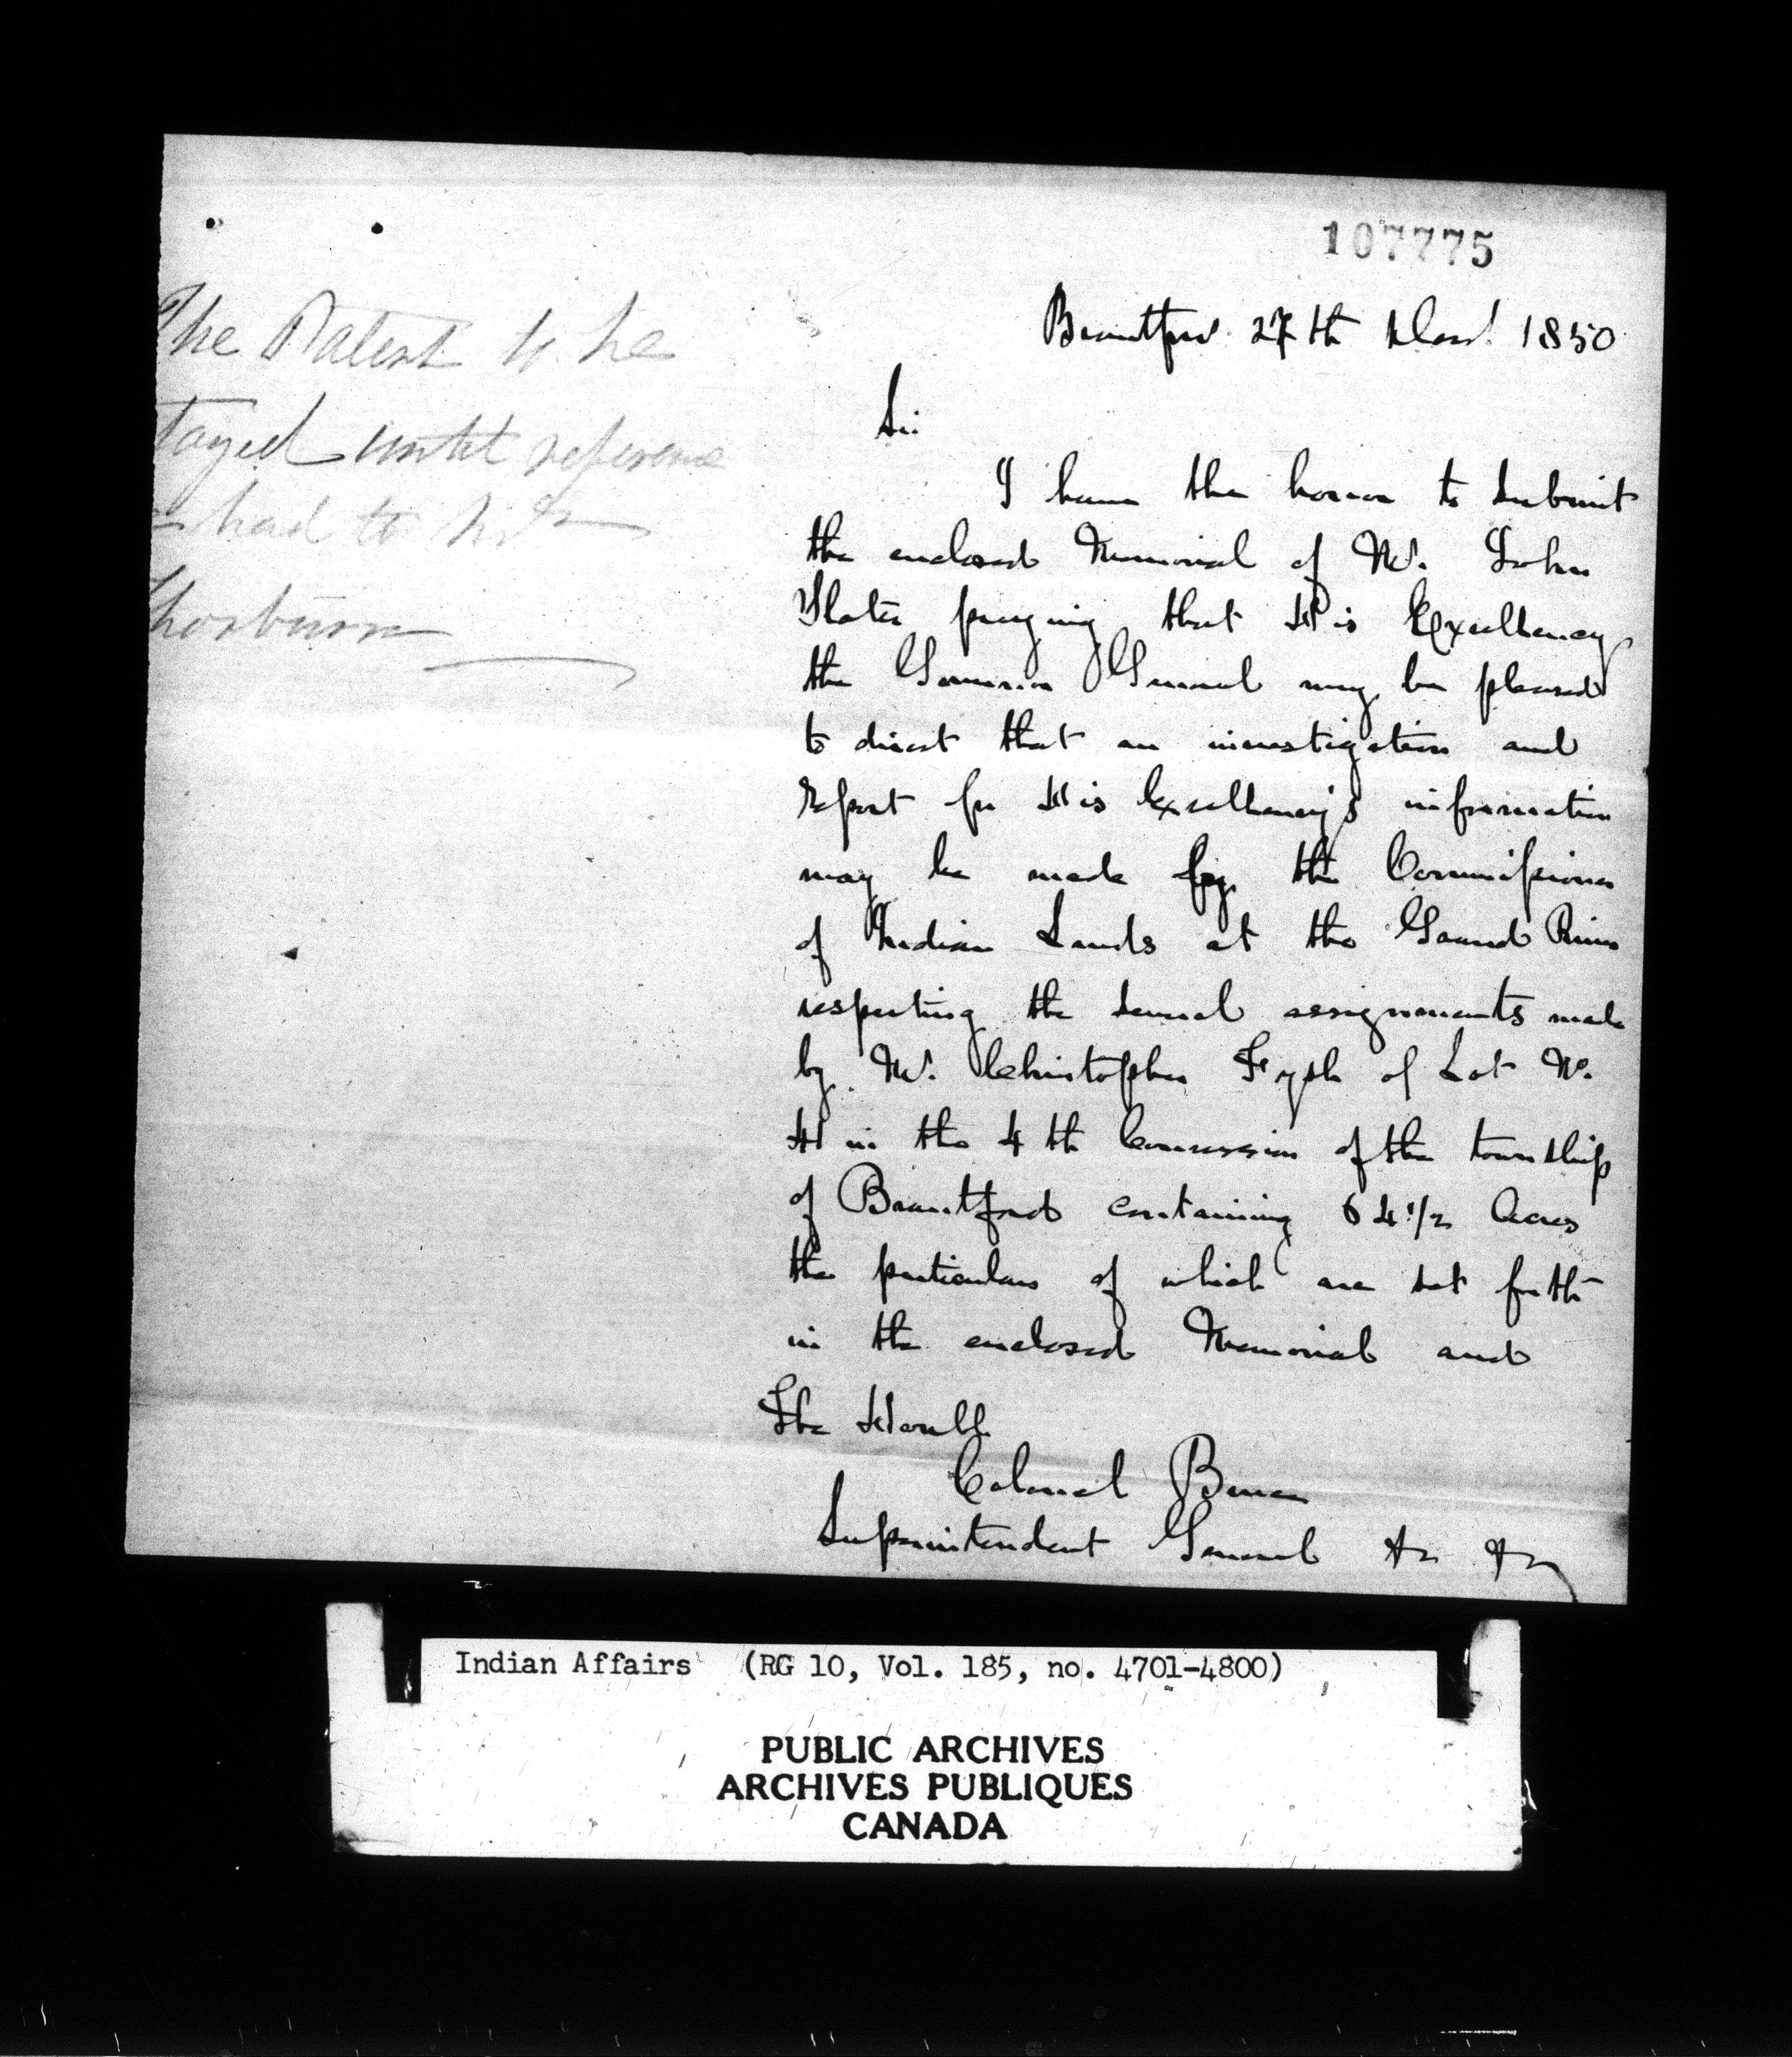 107775
Brantford 27th Decr. 1850
Sir
I have the honor to submit
the enclosed Memorial of Mr. John
Slater praying that His Excellency
the Governor General may be pleased
to direct that an investigation and
report for His Excellency's information
may be made by the Commissioner
of Indian Lands at the Grand River
respecting the several assignments made
by Mr. Christopher Fysh of Lot No.
in the 4th Concession of the township
of Brantford containing 64 1/2 Acres
the particulars of which are set forth
in the enclosed Memorial and
The Honble
Colonel Bruce
Superintendent General &c &c
The Patent to be
stayed until reference
is had to Mr
Thorburn
Indian Affairs (RG 10, Vol. 185, no. 4701-4800)
PUBLIC ARCHIVES
ARCHIVES PUBLIQUES
CANADA